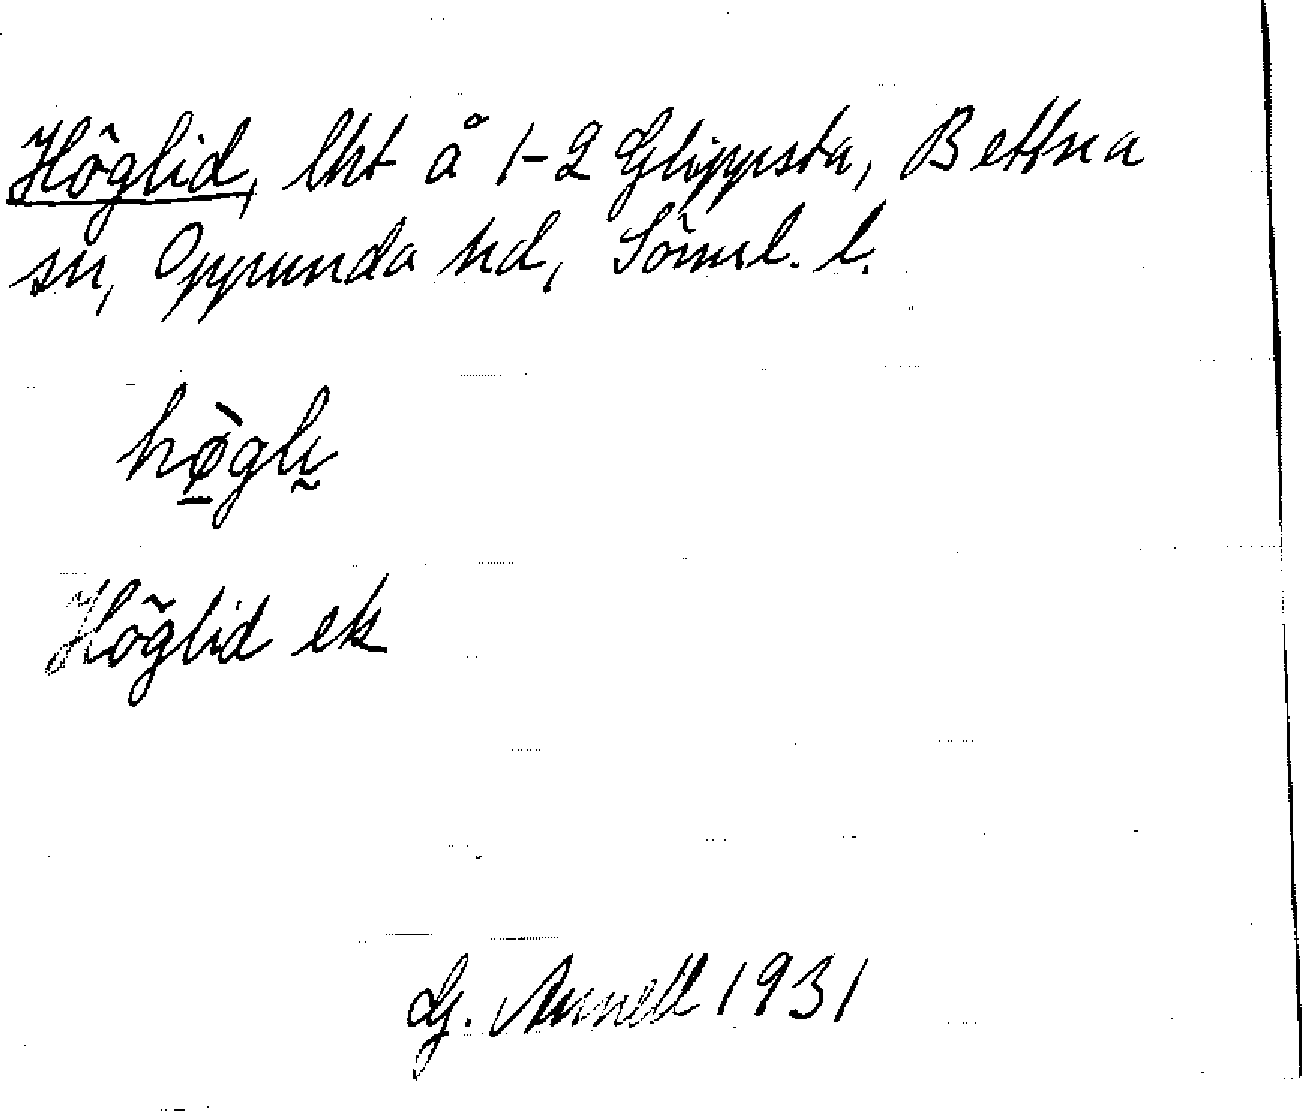 Höglid, lht å 1-2 Glippsta, Bettna
sn, Oppunda hd, Söml. l.
hø̀gli
Höglid ek
G. Annell 1931